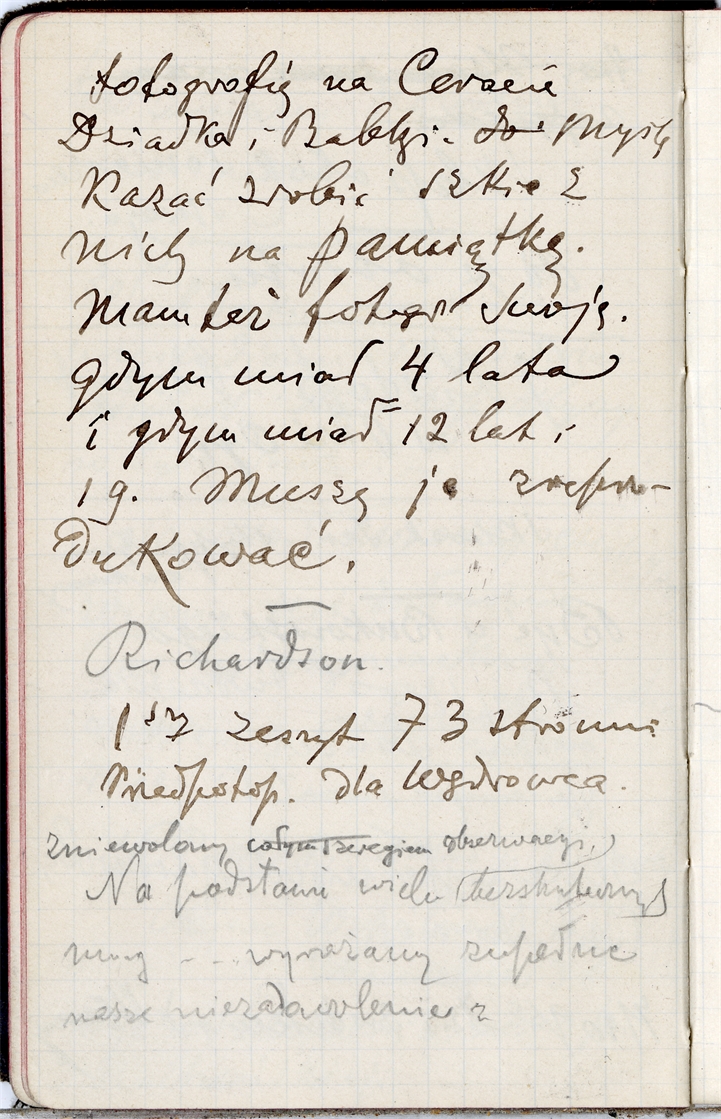 fotografię na Ceracie
Dziadka i Babki. Do myślę
Kazać zrobić szkic z
nich na pamiątkę.
Mam też fotogr swoję.
gdym miał 4 lata
i gdym miał 12 lat i
19. Muszę je zrepro-
dukować.
Richardson.
1szy zeszyt 73 stronni
Przedpotop. dla Wędrowca.
zniewolony całym szeregiem obserwacyi,
Na podstawie wielu bezskutecznych
wyrażamy zupełnie
nasze niezadowolenie z